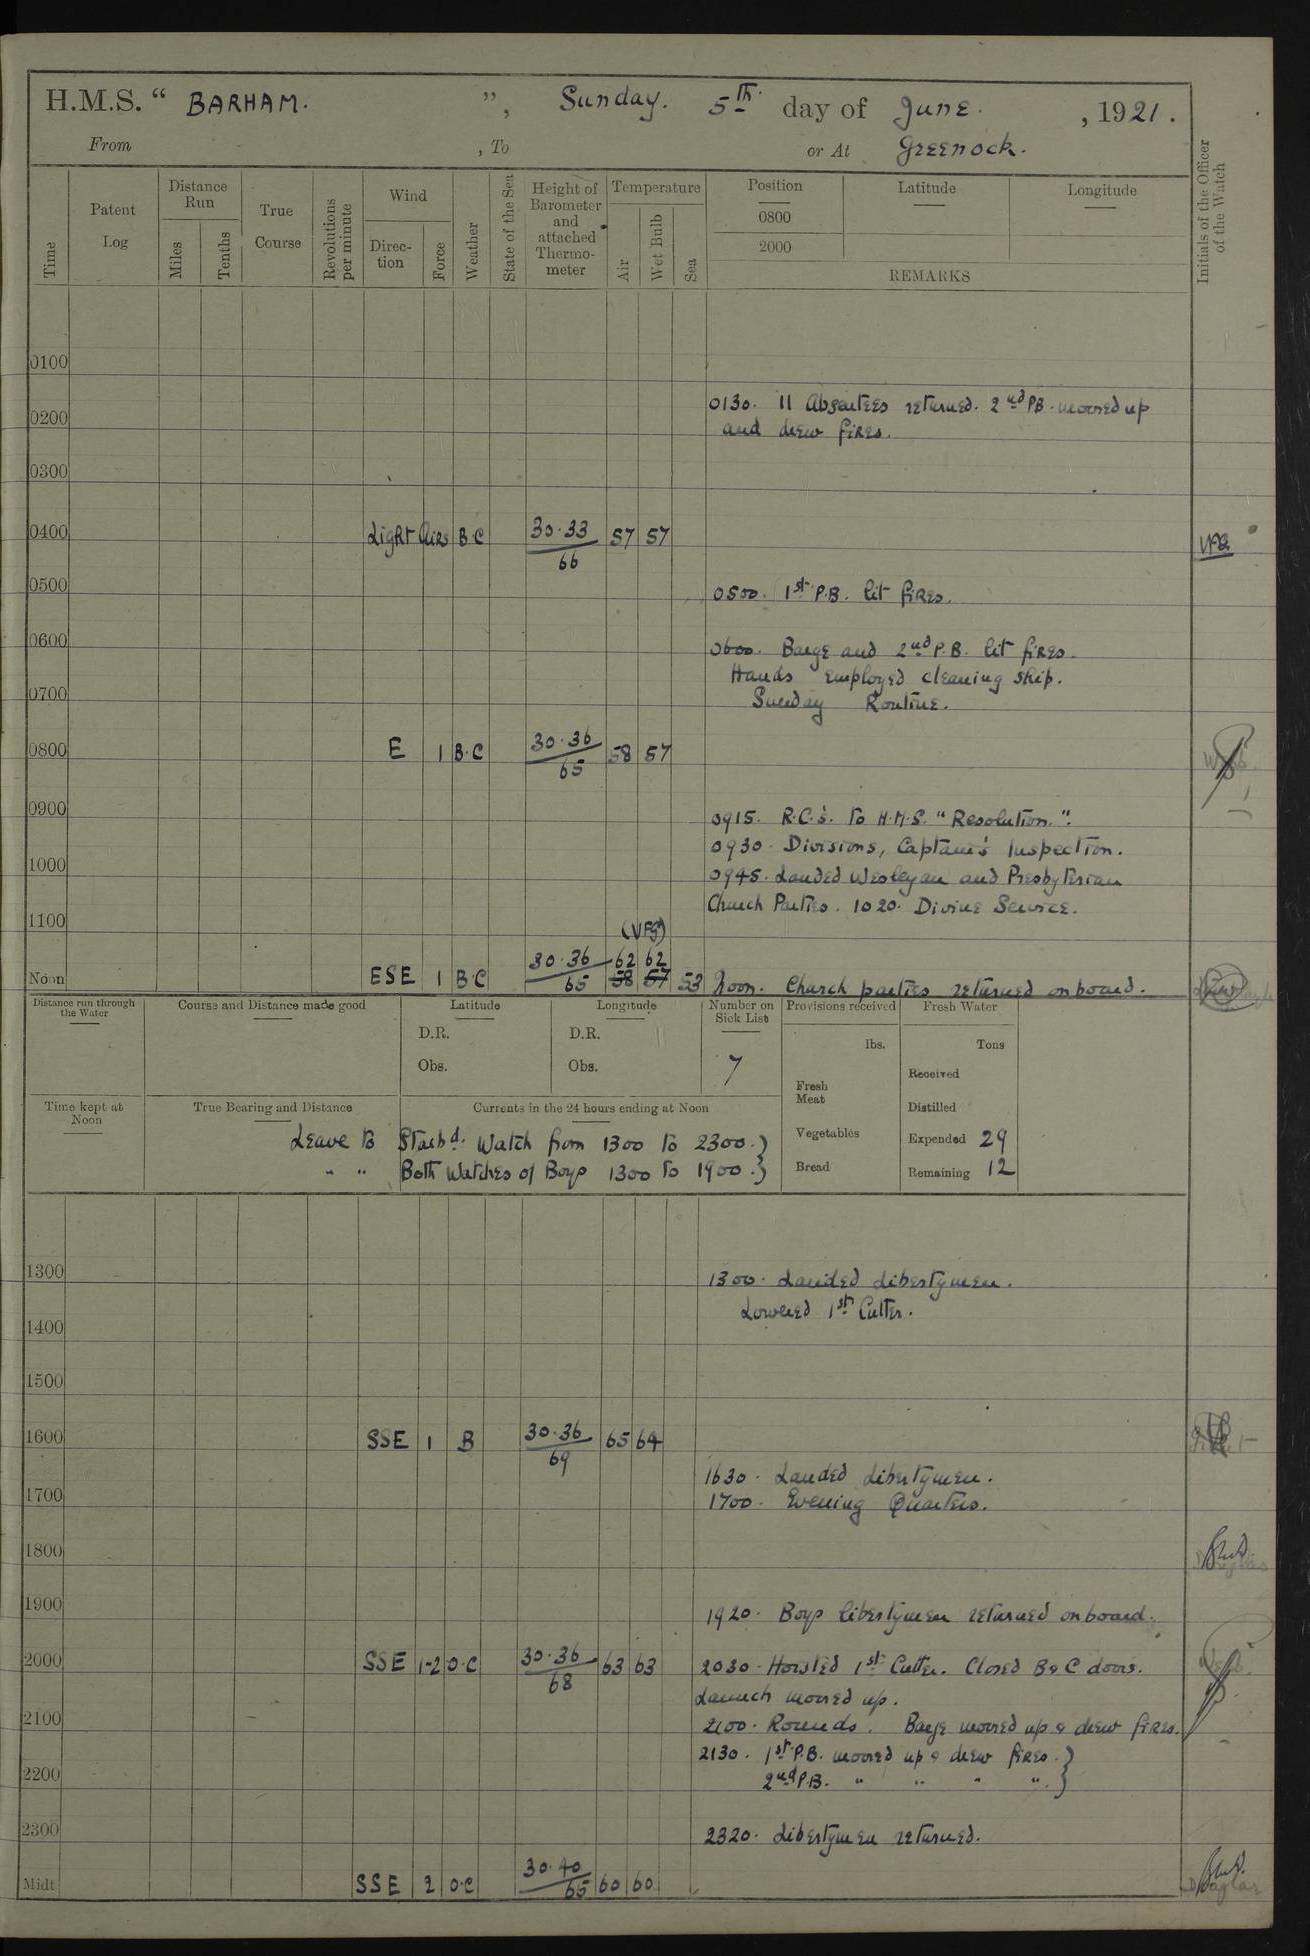 H.M.S. “ BARHAM. ”, Sunday. 5th day of June. , 1921.
From , To or At Greenock.
Time Patent Log Distance Run Miles Tenths True Course Revolutions per minute Wind Direc-tion Force Weather State of the Sea Height of Barometer and attached Thermo-meter Temperature Air Wet Bulb Sea Position 0800 2000 Latitude Longitude Initials of the Officer of the Watch
REMARKS
0100
0130. 11 Absentees returned. 2nd PB. moored up
0200
and drew fires.
0300
0400 Light Airs B.C 30.33 57 57 VFS
66
0500 0500. 1st P.B. lit fires.
0600 0600. Barge and 2nd P.B. lit fires.
Hands employed cleaning ship.
0700 Sunday Routine.
0800 E 1 B.C 30.36 58 57
65
0900 0915. R.C's. to H.M.S. "Resolution.".
0930. Divisions, Captain's Inspection.
1000 0945. Landed Wesleyan and Presbyterian
Church Parties. 1020. Divine Service.
1100 (VFS)
30.36 62 62
Noon ESE 1 B.C 65 58 57 53 Noon. Church parties returned onboard.
Distance run through the Water Course and Distance made good Latitude Longitude Number on Sick List Provisions received Fresh Water
D.R. D.R. lbs. Tons
Obs. Obs. 7 Received
Fresh Meat
Time kept at Noon True Bearing and Distance Currents in the 24 hours ending at Noon Distilled
Leave to Starbd. Watch from 1300 to 2300.} Vegetables Expended 29
" " Both Watches of Boys 1300 to 1900.} Bread Remaining 12
1300 1300. Landed Libertymen.
Lowered 1st Cutter.
1400
1500
1600 SSE 1 B 30.36 65 64
69
1630. Landed Libertymen.
1700 1700. Evening Quarters.
1800
1900 1920. Boys libertymen returned onboard.
2000 SSE 1-2 O.C 30.36 63 63 2030. Hoisted 1st Cutter. Closed B & C doors.
68
Launch moored up.
2100 2100. Rounds. Barge moored up & drew fires.
2130. 1st P.B. moored up & drew fires.}
2200 2nd P.B. " " " ".}
2300 2320. Libertymen returned.
30.40
Midt SSE 2 O.C 65 60 60 Douglas